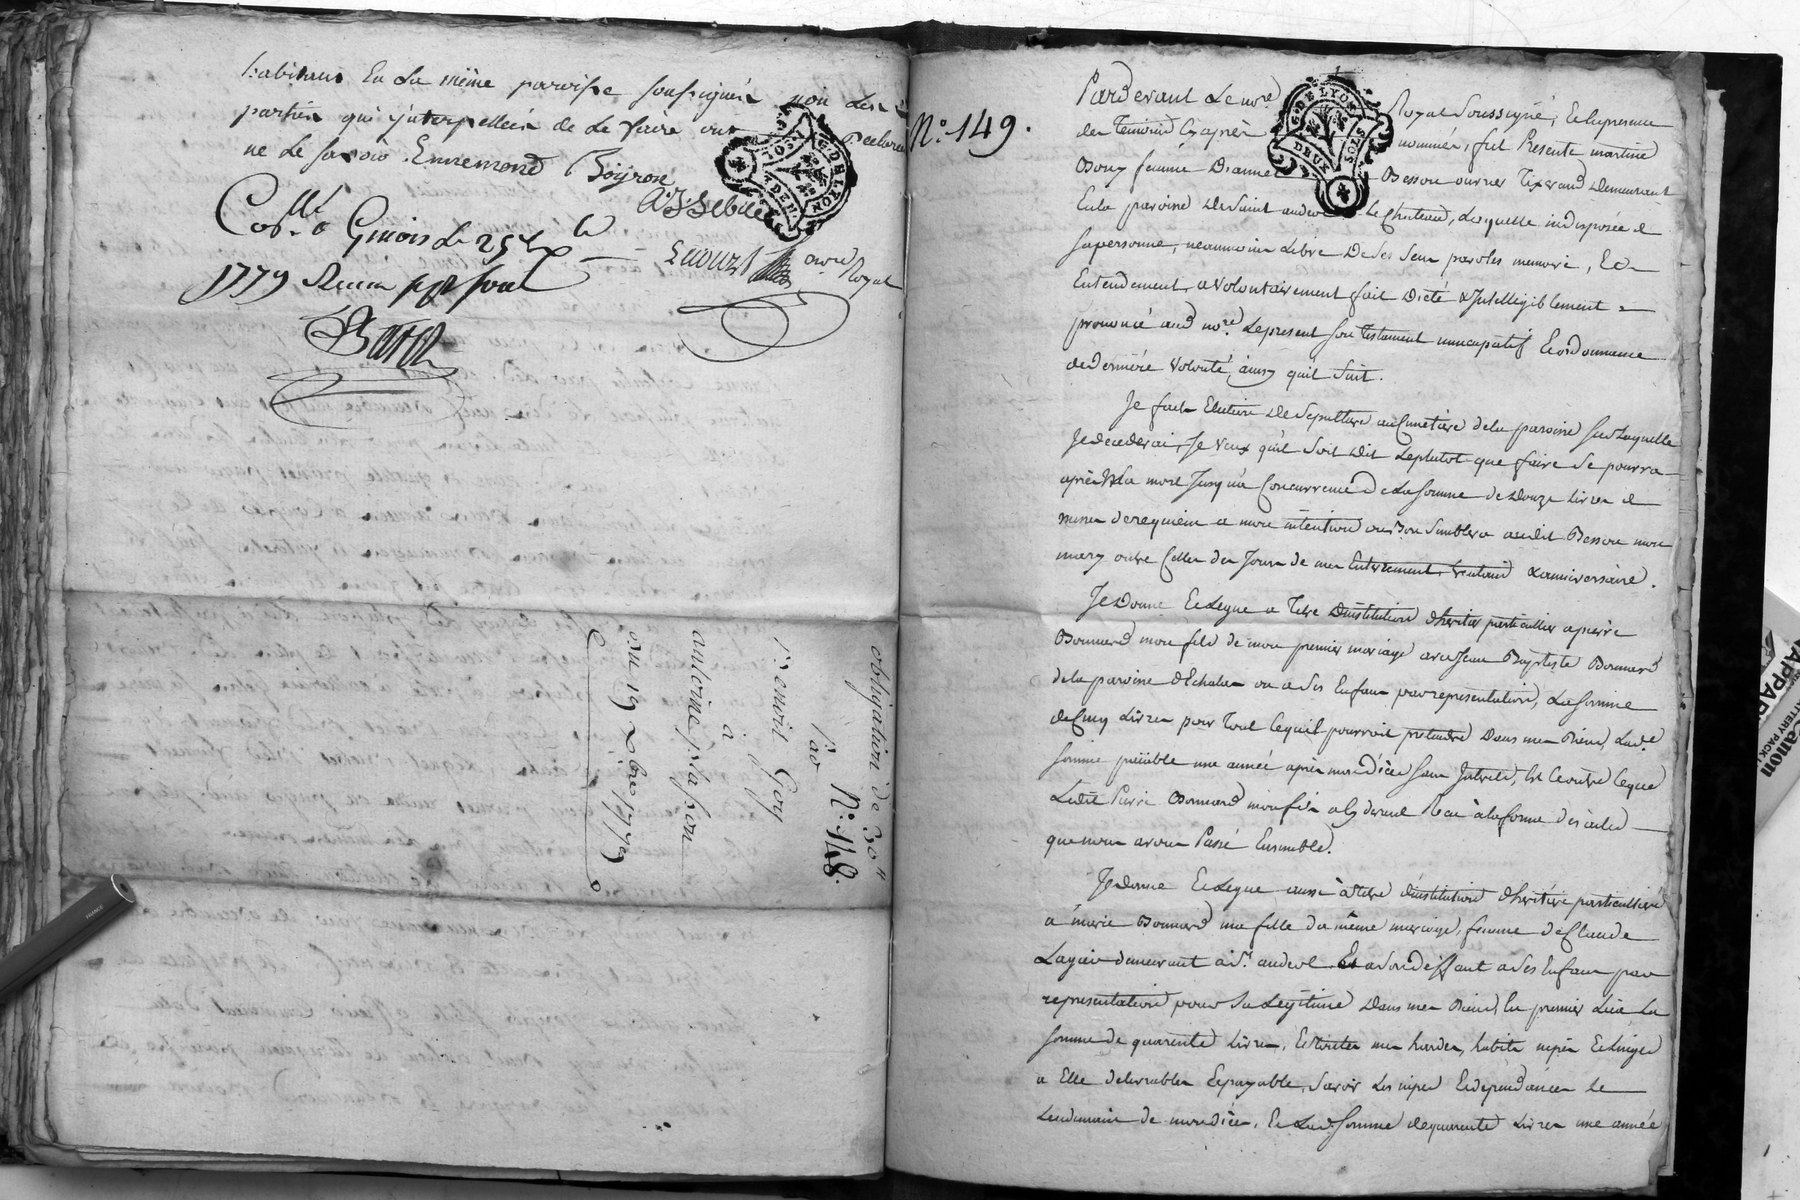 habitans En La même paroisse soussignés non Les
parties qui interpellées de Le faire ont
Declaré
ne Le savoir. Ennemond Boiron
A. J. Sebille
Collé a Givors Le 25 xbre
1779
Royal
obligation de 30 ll
Par
Benoit Goy
à
antoine plafon
Du 19 xbre 1779
N.° 148.
N.° 149.
G. DE LYON
DEUX SOLS
Pardevant Le no.re Royal Soussigné, En la presence
des Temoins Cy après nommés, fut Presente martine
Bony femme D'annet Besson ouvrier Tixerand Demeurant
En la paroisse De Saint andeol Le Chateau, Laquelle indisposée de
sa personne, neanmoins Libre De Ses Sens paroles memoire, Et
Entendement, a Volontairement fait Dicté & Intelligiblement
prononcé aud no.re Le present son Testament nuncupatif Et ordonnance
de Derniére Volonté, ainsy qu'il Suit.
Je fais Election De Sepulture au Cimetiere de la paroisse Sur Laquelle
Je decederai, Je Veux qu'il Soit Dit Le plutot que faire Se pourra
après Ma mort Jusqu'à Concurrence De La Somme de Douze Livres de
messes de requiem a mon intention ou Bon Semblera audit Besson mon
mary outre Celles des Jours de mes Enterrement, trentain & anniversaire.
Je Donne Et Legue a Titre D'institution d'heritier particulier a pierre
Bonnard mon fils de mon premier mariage avec Jean Baptiste Bonnard
de la paroisse d'Echalas ou a Ses Enfans par representation, La Somme
de Cinq Livres pour Tout Ce qu'il pourroit pretendre Dans mes Biens, Lad.e
Somme païable une année après mon Décès Sans Interets, Et Ce outre Ce que
Ledit Pierre Bonnard mon fils a Cy devant Reçu à la forme des actes
que nous avons Passé Ensemble.
Je donne Et Legue aussi à Titre d'institution d'héritiére particulliére
a marie Bonnard ma fille du même mariage, femme de Claude
demeurant a St. andeol Et a Son deffaut a Ses Enfans par
representation pour Sa Legitime Dans mes Biens, En premier Lieu La
Somme de quarente Livres, Et Toutes mes hardes, habits nipes Et Linges
a Elle delivrables Et payable, Savoir Les nipes Et dependances Le
Lendemain de mon décès, Et Lad. Somme de quarente Livres une année